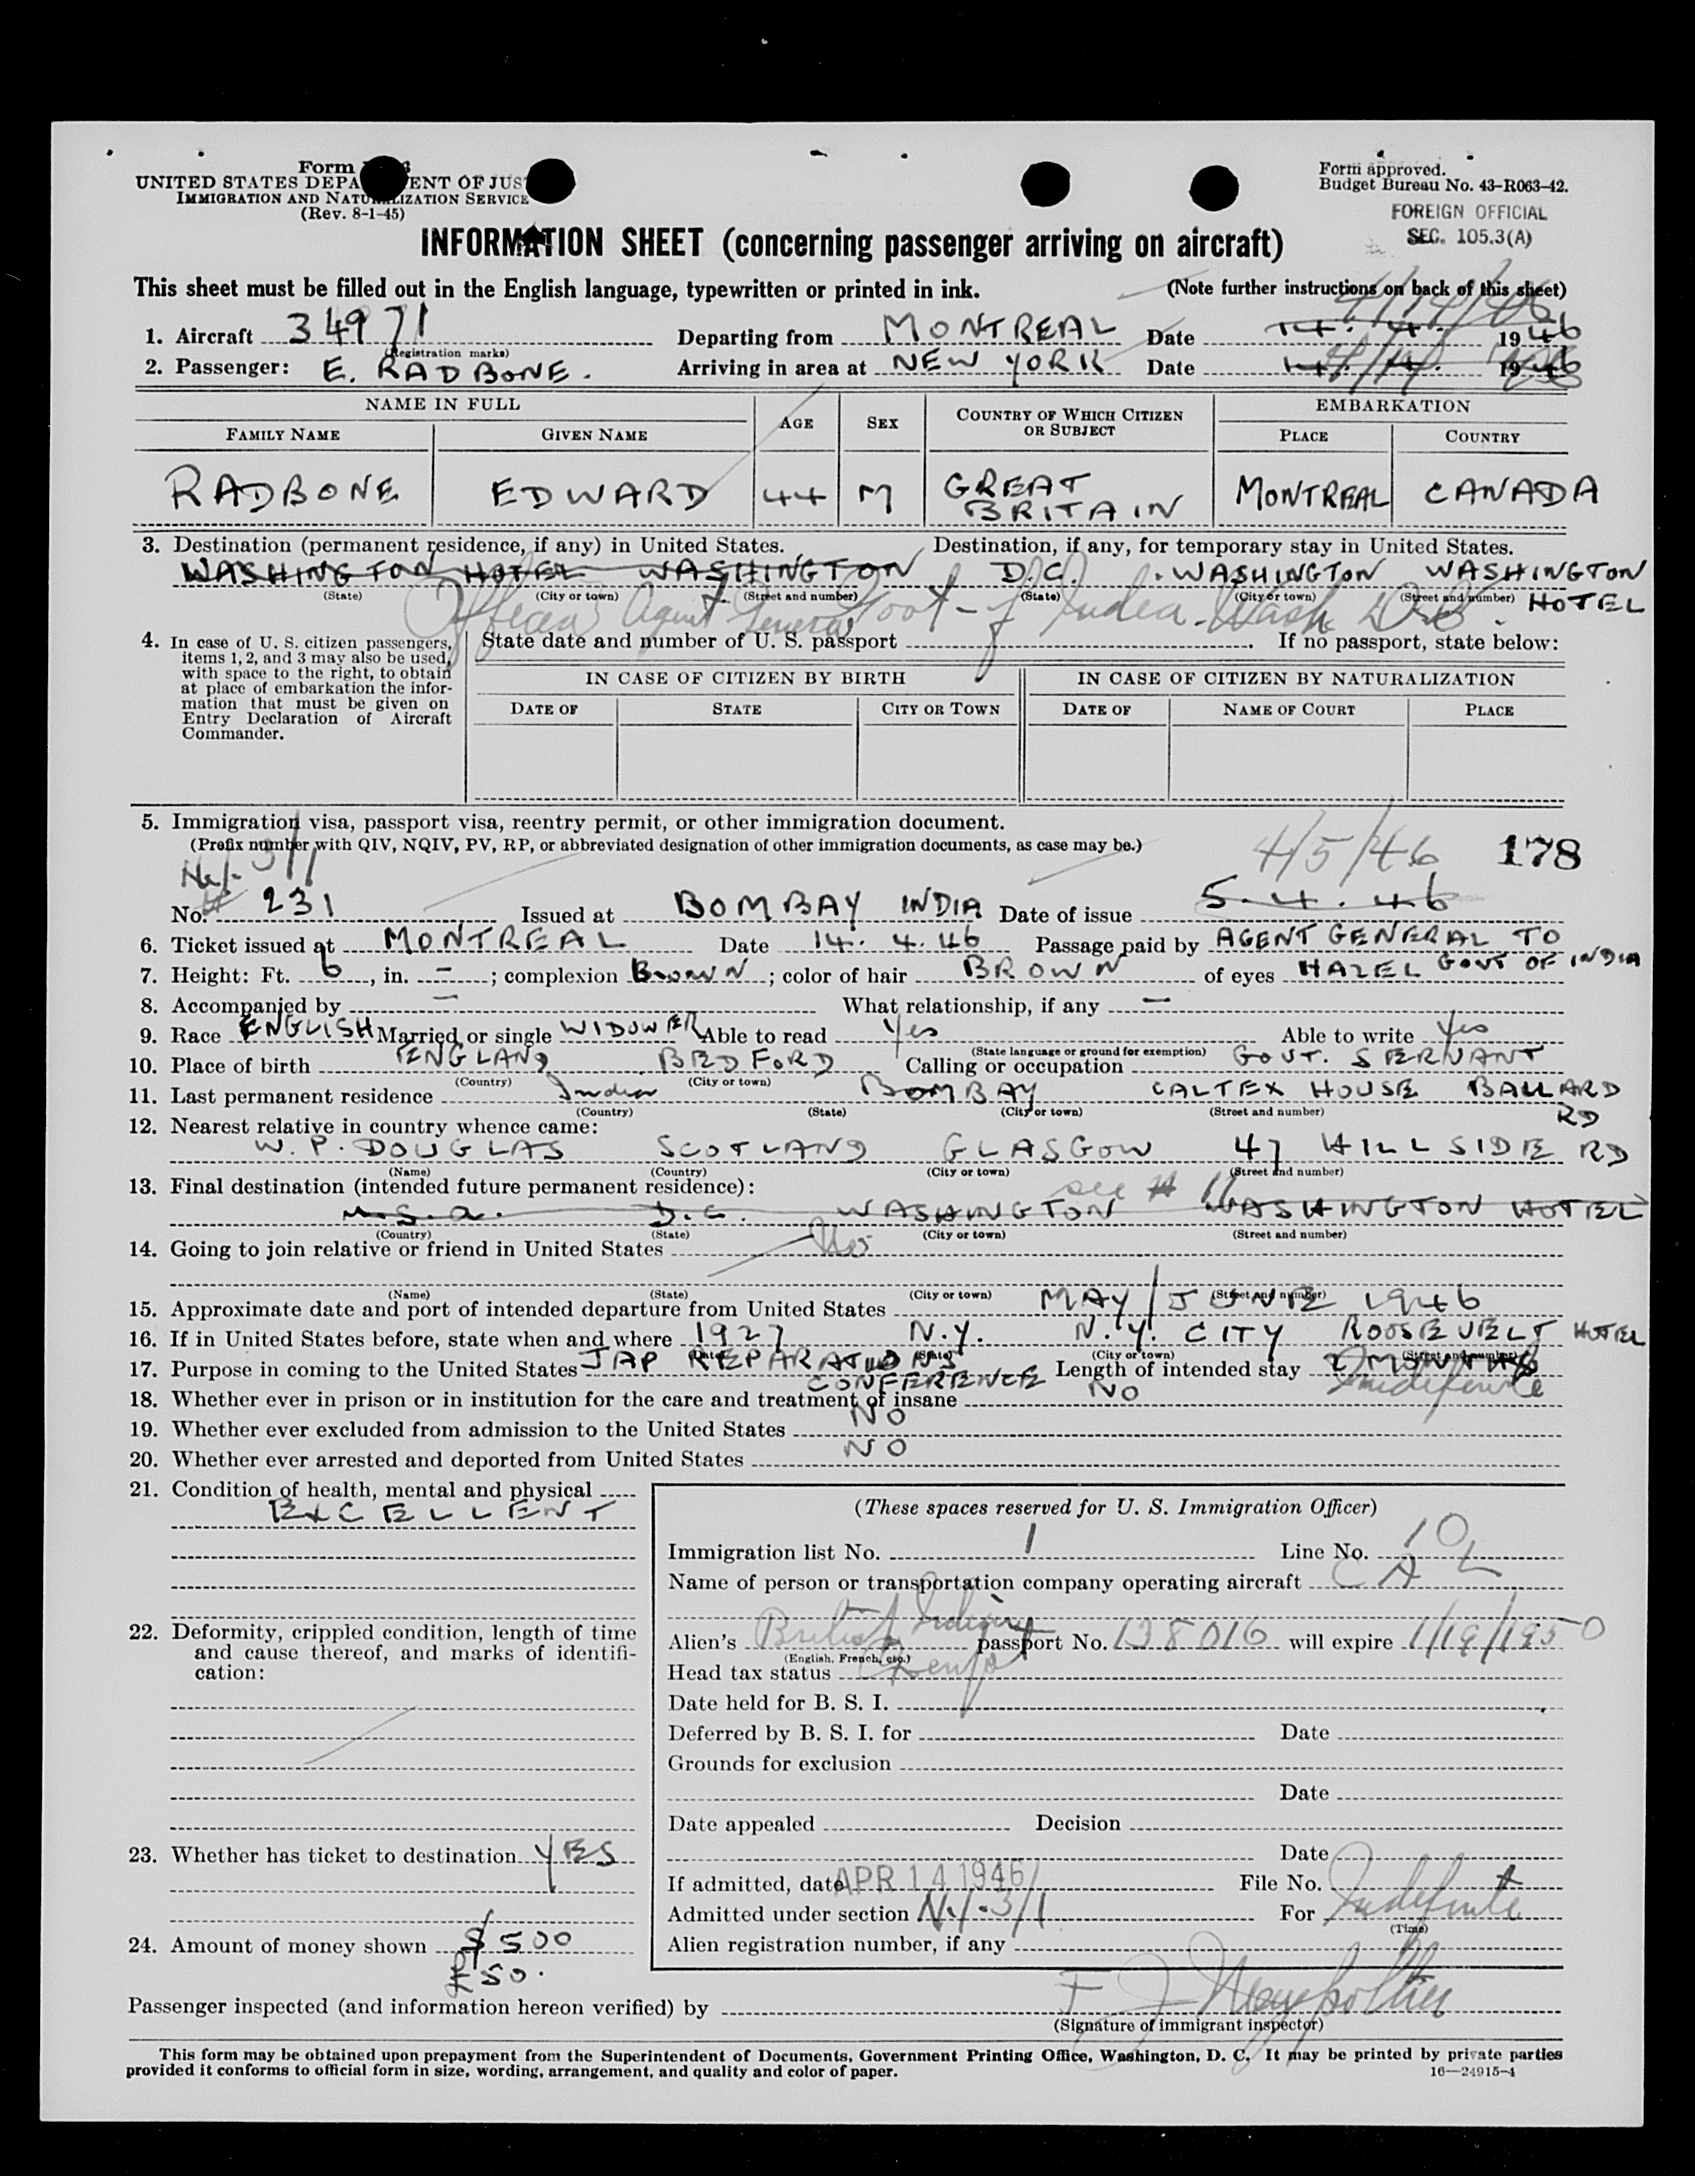 Form
UNITED STATES DEPA ENT OF JUS
IMMIGRATION AND NATURALIZATION SERVICE
(Rev. 8-1-45)
Form approved.
Budget Bureau No. 43-R063-42.
FOREIGN OFFICIAL
SEC. 105.3(A)
INFORMATION SHEET (concerning passenger arriving on aircraft)
This sheet must be filled out in the English language, typewritten or printed in ink. (Note further instructions on back of this sheet)
4/14/46
1. Aircraft 34971 Departing from MONTREAL Date 14. 4. 1946
(Registration marks)
2. Passenger: E. RADBONE. Arriving in area at NEW YORK Date 14. 4. 1946
NAME IN FULL AGE SEX COUNTRY OF WHICH CITIZEN OR SUBJECT EMBARKATION
FAMILY NAME GIVEN NAME PLACE COUNTRY
RADBONE EDWARD 44 M GREAT BRITAIN MONTREAL CANADA
3. Destination (permanent residence, if any) in United States. Destination, if any, for temporary stay in United States.
WASHINGTON HOTEL WASHINGTON D.C. WASHINGTON WASHINGTON HOTEL
(State) (City or town) (Street and number) (State) (City or town) (Street and number)
Agent General Govt of India Wash D.C.
4. In case of U. S. citizen passengers, items 1, 2, and 3 may also be used, with space to the right, to obtain at place of embarkation the information that must be given on Entry Declaration of Aircraft Commander.
State date and number of U. S. passport . If no passport, state below:
IN CASE OF CITIZEN BY BIRTH IN CASE OF CITIZEN BY NATURALIZATION
DATE OF STATE CITY OR TOWN DATE OF NAME OF COURT PLACE
5. Immigration visa, passport visa, reentry permit, or other immigration document.
(Prefix number with QIV, NQIV, PV, RP, or abbreviated designation of other immigration documents, as case may be.)
3/1 4/5/46 178
No. 231 Issued at BOMBAY INDIA Date of issue 5.4.46
6. Ticket issued at MONTREAL Date 14. 4. 46 Passage paid by AGENT GENERAL TO GOVT OF INDIA
7. Height: Ft. 6, in. –; complexion BROWN; color of hair BROWN of eyes HAZEL
8. Accompanied by – What relationship, if any –
9. Race ENGLISH Married or single WIDOWER Able to read Yes Able to write Yes
(State language or ground for exemption)
10. Place of birth ENGLAND BEDFORD Calling or occupation GOVT. SERVANT
(Country) (City or town)
11. Last permanent residence India BOMBAY CALTEX HOUSE BALLARD RD
(Country) (State) (City or town) (Street and number)
12. Nearest relative in country whence came:
W. P. DOUGLAS SCOTLAND GLASGOW 47 HILLSIDE RD
(Name) (Country) (City or town) (Street and number)
13. Final destination (intended future permanent residence): see # 11
U.S.A. D.C. WASHINGTON WASHINGTON HOTEL
(Country) (State) (City or town) (Street and number)
14. Going to join relative or friend in United States No
(Name) (State) (City or town) (Street and number)
15. Approximate date and port of intended departure from United States MAY/JUNE 1946
16. If in United States before, state when and where 1927 N.Y. N.Y. CITY ROOSEVELT HOTEL
(Date) (State) (City or town) (Street and number)
17. Purpose in coming to the United States JAP REPARATIONS CONFERENCE Length of intended stay 2 MONTHS
Indefinite
18. Whether ever in prison or in institution for the care and treatment of insane NO
19. Whether ever excluded from admission to the United States NO
20. Whether ever arrested and deported from United States NO
21. Condition of health, mental and physical
EXCELLENT
22. Deformity, crippled condition, length of time and cause thereof, and marks of identification:
23. Whether has ticket to destination YES
24. Amount of money shown $500
£50.
(These spaces reserved for U. S. Immigration Officer)
Immigration list No. 1 Line No. 10
Name of person or transportation company operating aircraft C A L
Alien's British Indian passport No. 138016 will expire 1/19/1950
(English, French, etc.)
Head tax status Exempt
Date held for B. S. I.
Deferred by B. S. I. for Date
Grounds for exclusion
Date
Date appealed Decision
Date
If admitted, date APR 14 1946 File No.
Admitted under section 3/1 For Indefinite
(Time)
Alien registration number, if any
Passenger inspected (and information hereon verified) by
(Signature of immigrant inspector)
This form may be obtained upon prepayment from the Superintendent of Documents, Government Printing Office, Washington, D. C. It may be printed by private parties
provided it conforms to official form in size, wording, arrangement, and quality and color of paper. 16—24915-4